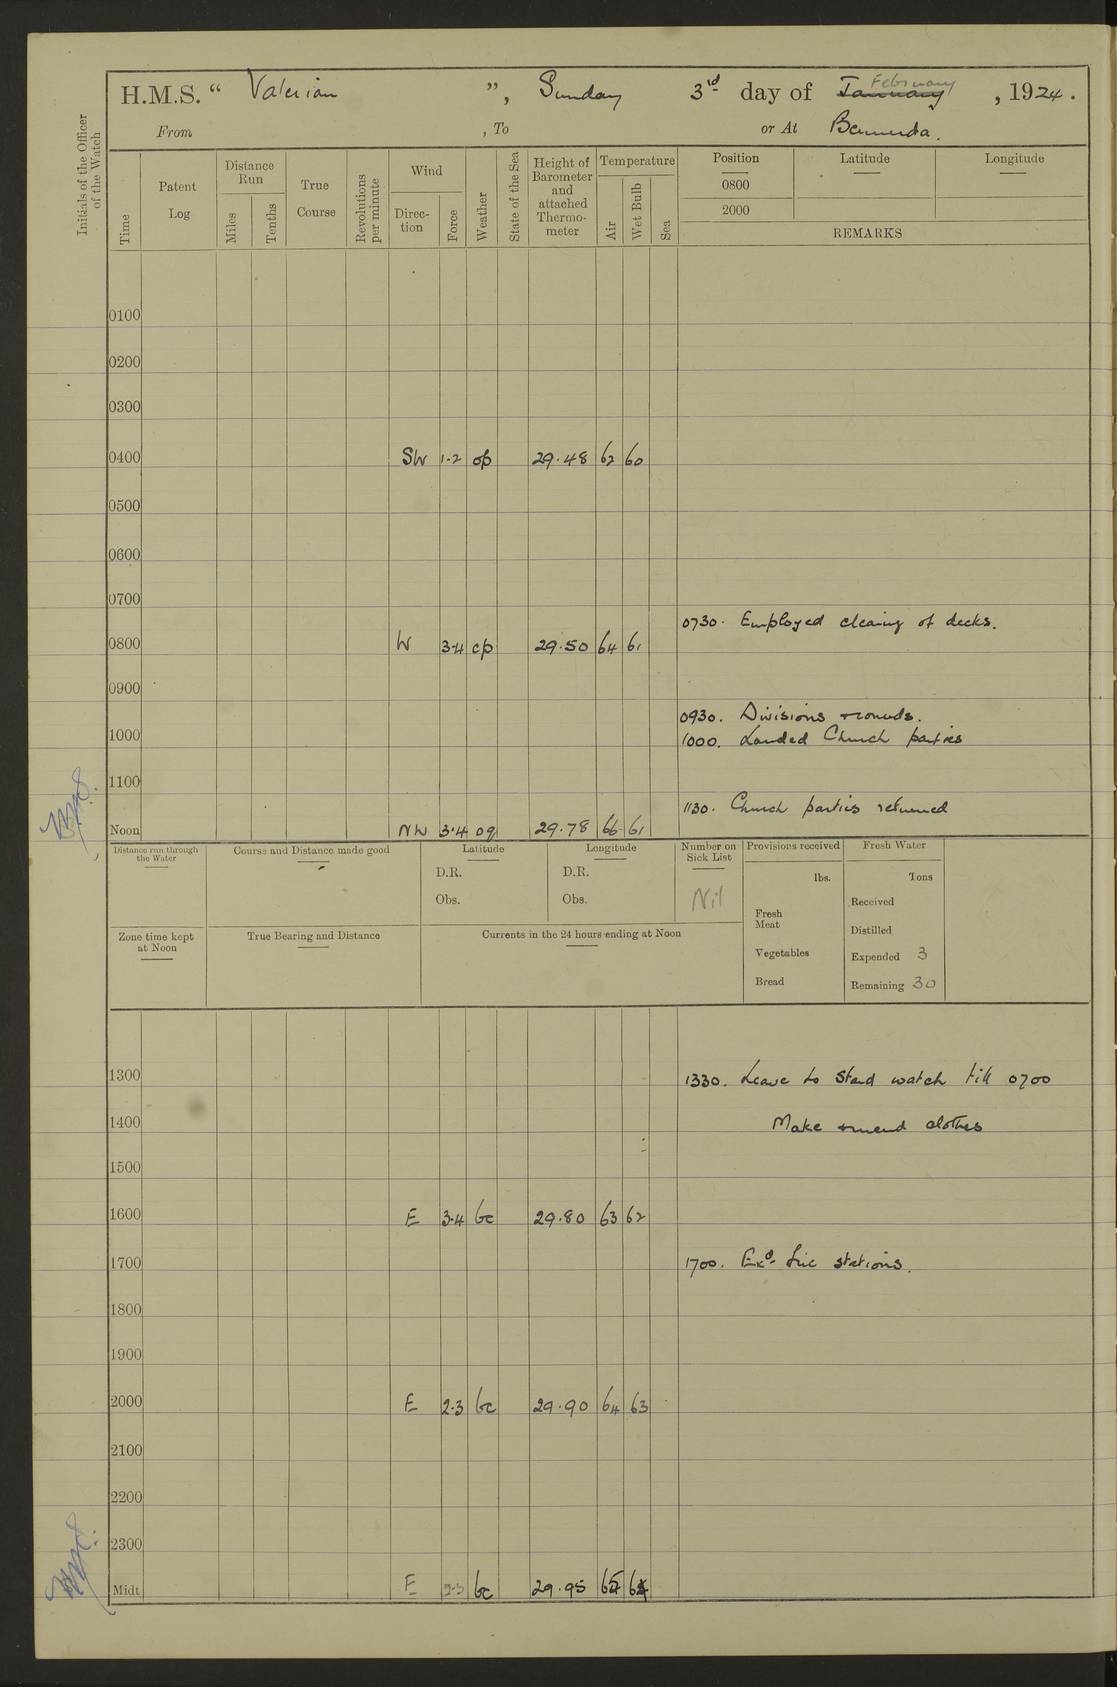 H.M.S. “ Valerian ”, Sunday 3rd day of January February , 1924.
From , To or At Bermuda.
Initials of the Officer of the Watch
Time
Patent Log
Distance Run
Miles
Tenths
True Course
Revolutions per minute
Wind
Direc-tion
Force
Weather
State of the Sea
Height of Barometer and attached Thermo-meter
Temperature
Air
Wet Bulb
Sea
Position
Latitude
Longitude
0800
2000
REMARKS
0100
0200
0300
0400 SW 1-2 op 29.48 62 60
0500
0600
0700
0730. Employed clearing of decks.
0800 W 3-4 cp 29.50 64 61
0900
0930. Divisions + rounds.
1000 1000. Landed Church parties
1100
1130. Church parties returned
Noon NW 3.4 oq 29.78 66 61
Distance run through the Water
Course and Distance made good
Latitude
D.R.
Obs.
Longitude
D.R.
Obs.
Number on Sick List
Nil
Provisions received
lbs.
Fresh Meat
Vegetables
Bread
Fresh Water
Tons
Received
Distilled
Expended 3
Remaining 30
Zone time kept at Noon
True Bearing and Distance
Currents in the 24 hours ending at Noon
1300 1330. Leave to Stard watch till 0700
1400 Make + mend clothes
1500
1600 E 3.4 bc 29.80 63 62
1700 1700. Exd. fire stations.
1800
1900
2000 E 2.3 bc 29.90 64 63
2100
2200
2300
Midt E 2.3 bc 29.95 65